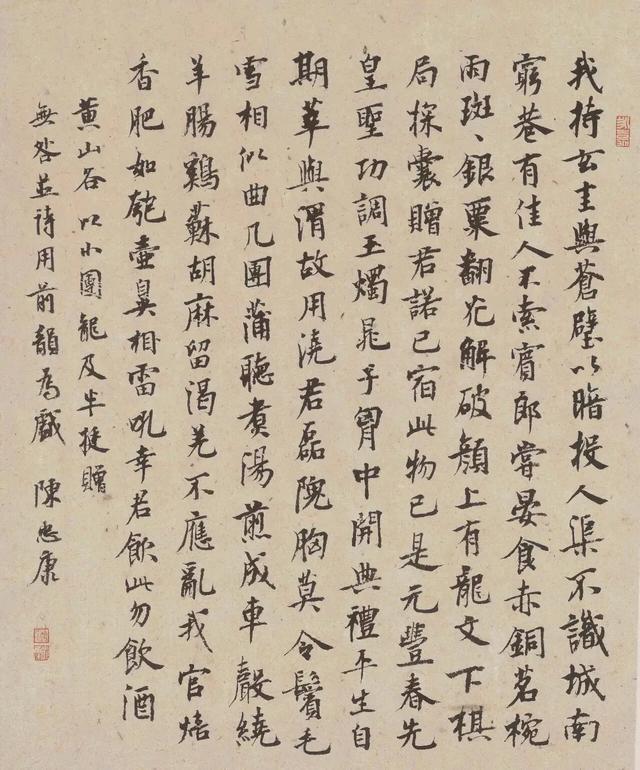 我持玄圭與蒼璧以暗投人渠不識城南
窮巷有佳人不索賓郎嘗晏食赤銅茗椀
雨斑〻銀粟翻花解破顏上有龍文下棋
局探囊贈君諾已宿此物已是元豐春先
皇聖功調玉燭晁子胷中開典禮平生自
期莘與渭故用澆君磊隗胸莫令鬢毛
雪相似曲几團蒲聽煮湯煎成車聲繞
羊腸雞蘇胡麻留渴羌不應亂我官焙
香肥如瓠壺鼻相雷吼幸君飲此勿飲酒
黃山谷以小團龍及半挺贈
無咎並詩用前韻為戲 陳忠康